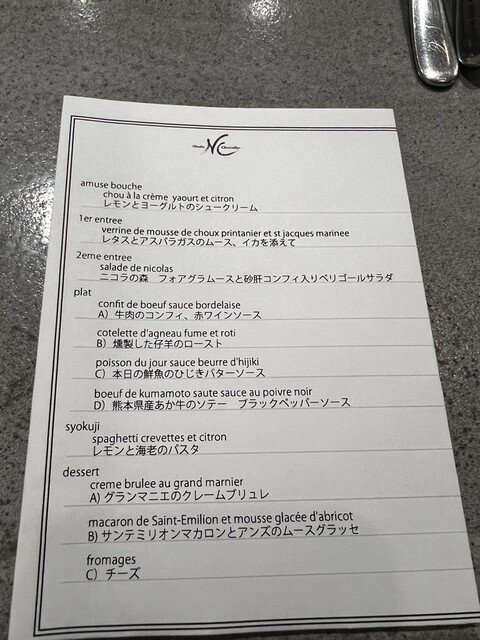 NC
amuse bouche
chou à la crème yaourt et citron
レモンとヨーグルトのシュークリーム
1er entree
verrine de mousse de choux printanier et st jacques marinee
レタスとアスパラガスのムース、イカを添えて
2eme entree
salade de nicolas
ニコラの森 フォアグラムースと砂肝コンフィ入りペリゴールサラダ
plat
confit de boeuf sauce bordelaise
A）牛肉のコンフィ、赤ワインソース
cotelette d'agneau fume et roti
B）燻製した仔羊のロースト
poisson du jour sauce beurre d'hijiki
C）本日の鮮魚のひじきバターソース
boeuf de kumamoto saute sauce au poivre noir
D）熊本県産あか牛のソテー ブラックペッパーソース
syokuji
spaghetti crevettes et citron
レモンと海老のパスタ
dessert
creme brulee au grand marnier
A) グランマニエのクレームブリュレ
macaron de Saint-Emilion et mousse glacée d'abricot
B) サンテミリオンマカロンとアンズのムースグラッセ
fromages
C）チーズ